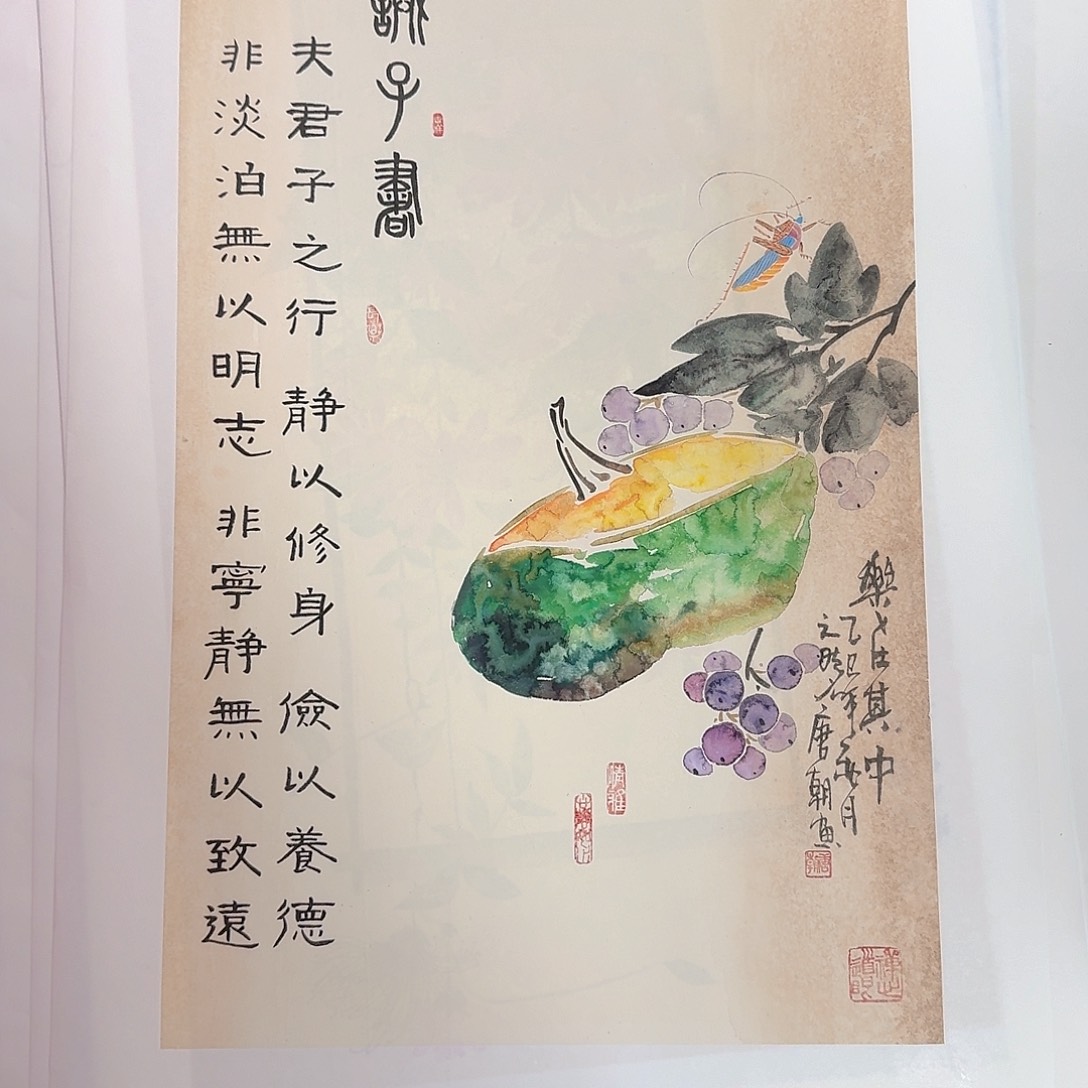 誡子書
夫君子之行 静以修身 儉以養德
非淡泊無以明志 非寧静無以致遠
樂在其中
乙巳年
唐朝画